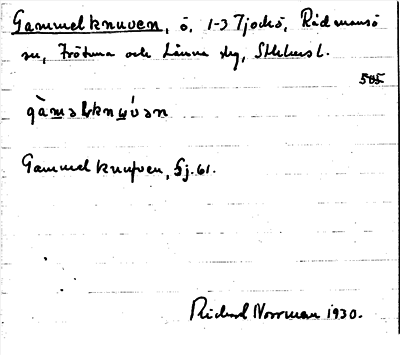 Gammelknuven, ö, 1-3 Tjockö, Rådmansö
sn, Frötuna och Länna slg, Sthlms l.
505
Gammelknufven, Sj. 61.
Rickard Norrman 1930.